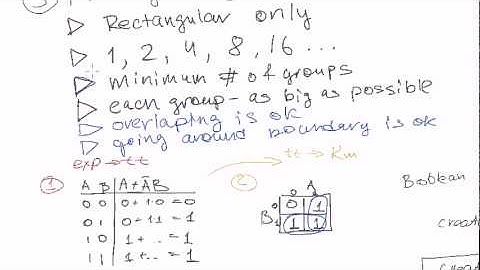 3
Rectangular only
1, 2, 4, 8, 16 ...
minimum # of groups
each group - as big as possible
overlaping is ok
going around boundary is ok
exp → tt
tt → Km
1
A B A + ĀB
0 0 0 + 1·0 = 0
0 1 0 + 1·1 = 1
1 0 1 + .. = 1
1 1 1 + .. = 1
2
A
0 1
B 0 0 1
1 1 1
Boolean